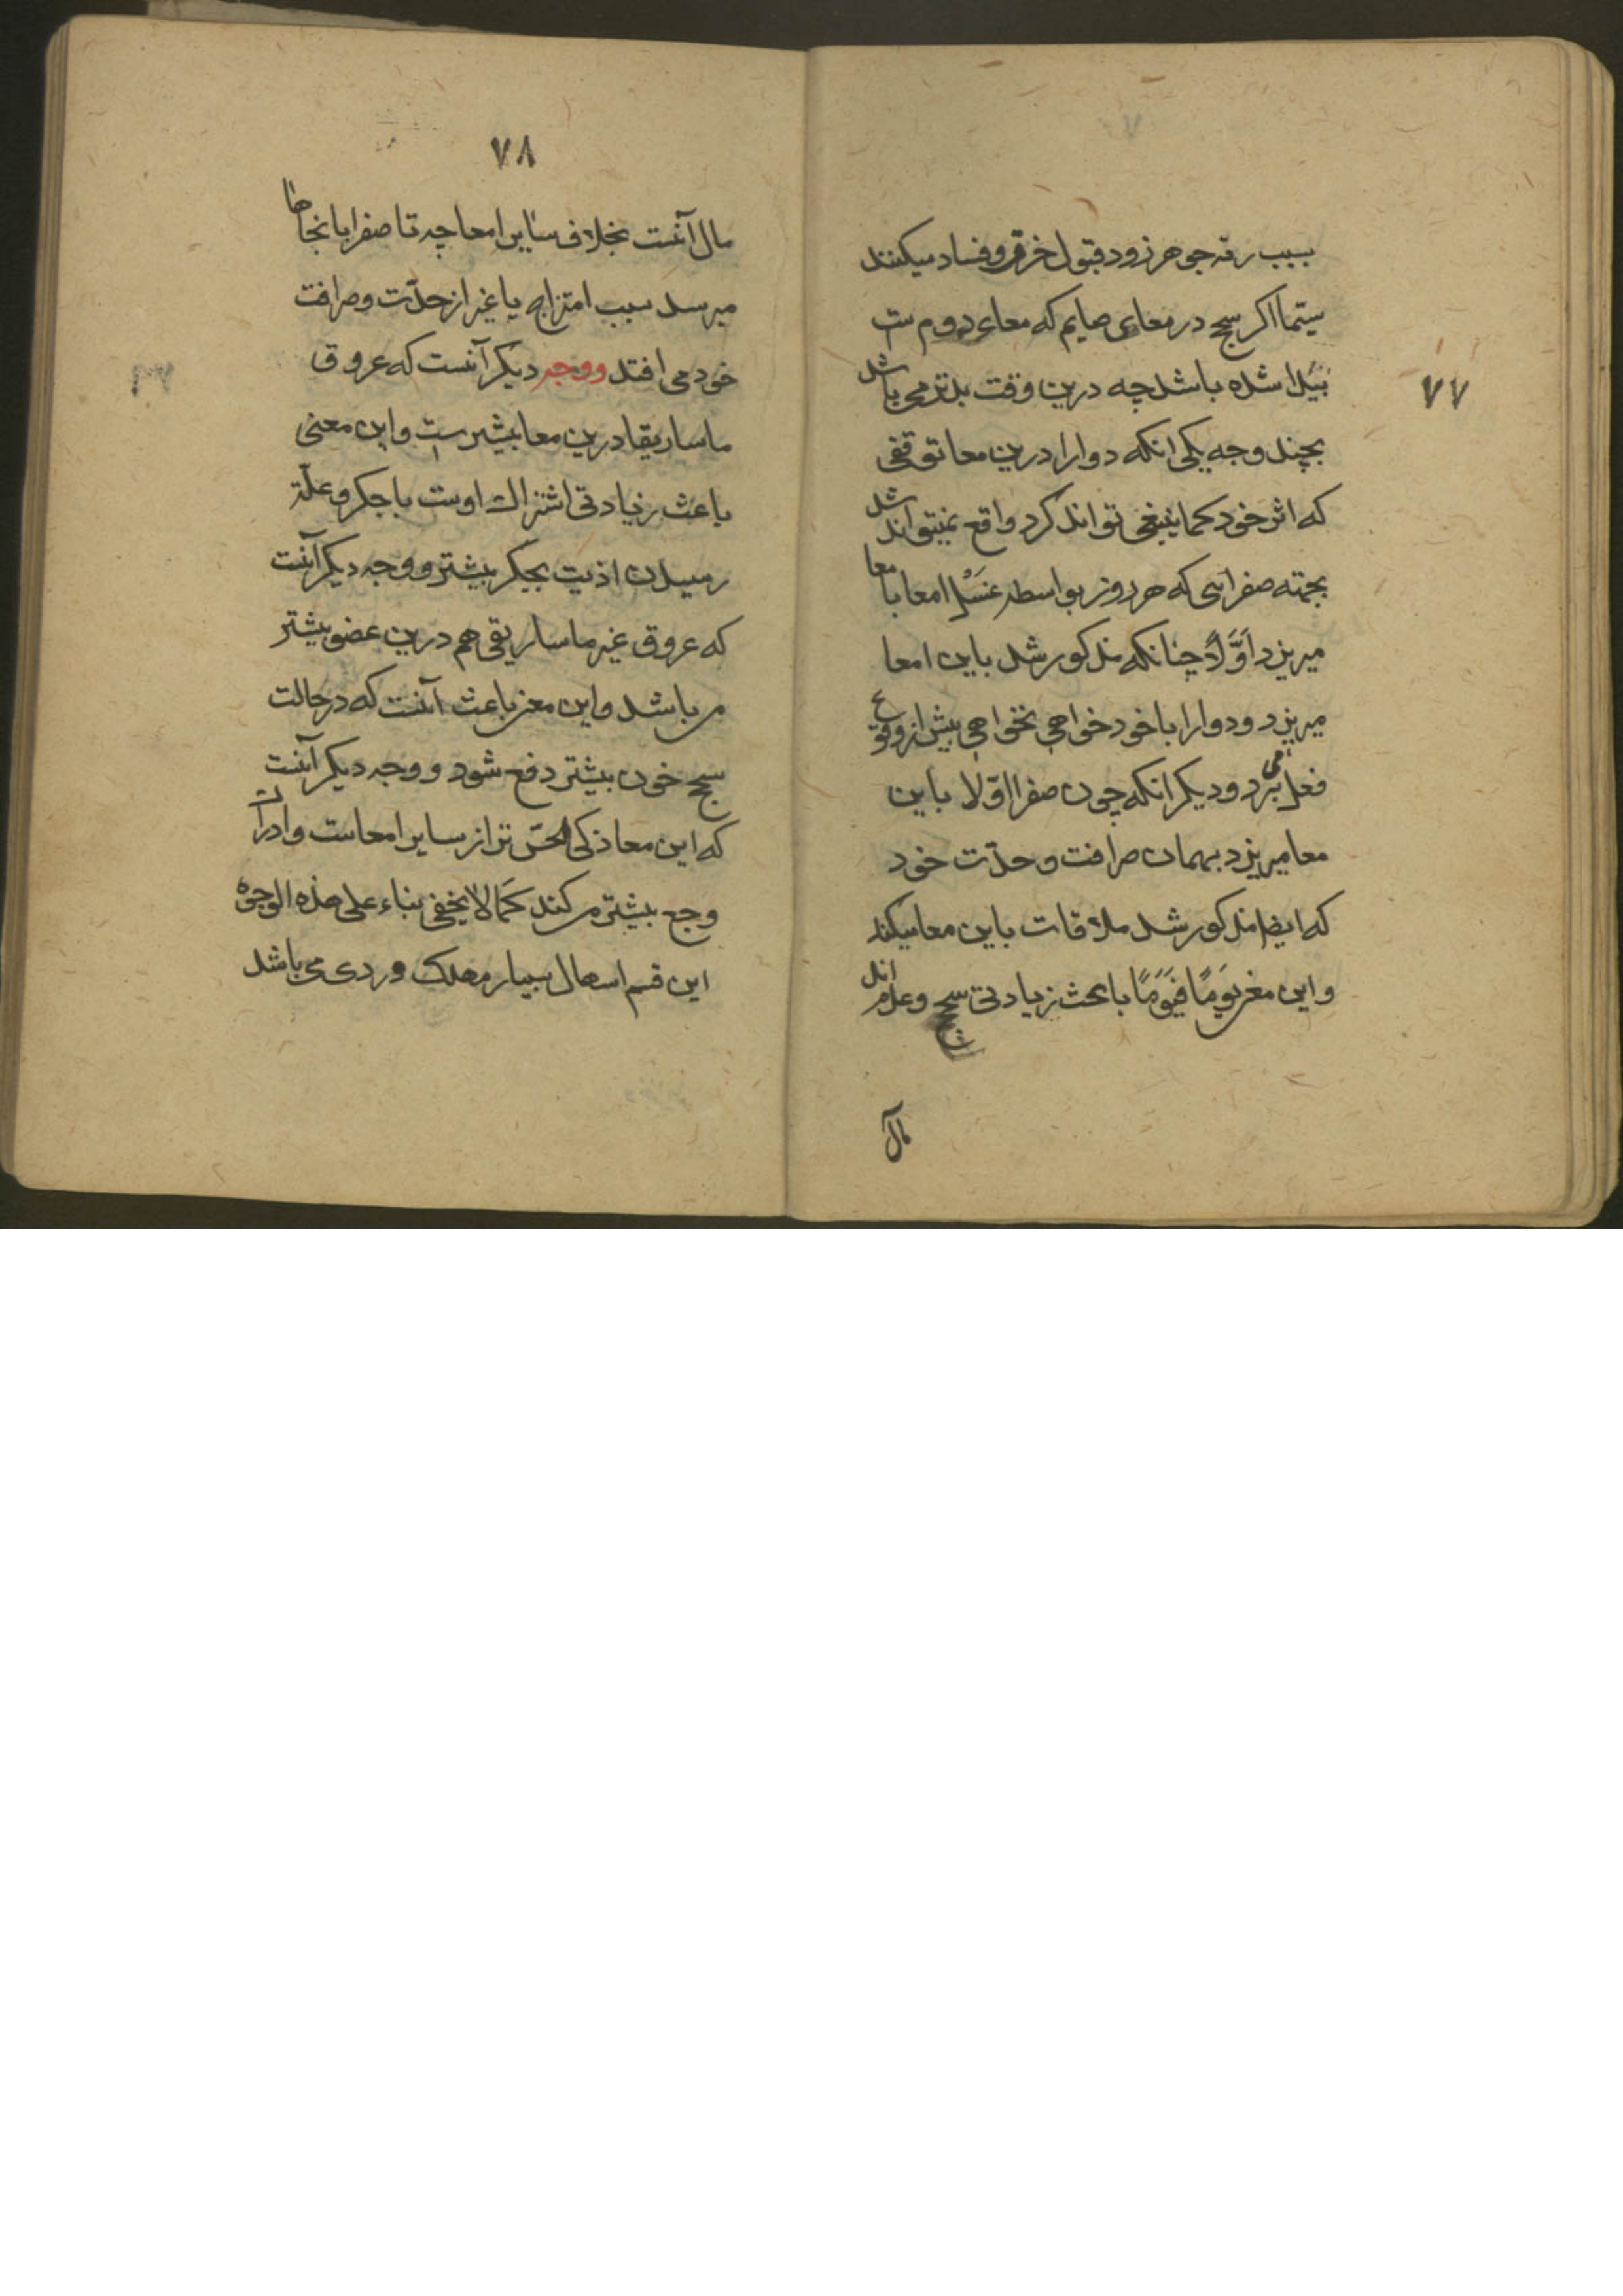 ۷۷
بسبب رقه جوهر زود قبول خرق و فساد میکنند
سیّما اکر سحج در معای صایم که معای دوم ست
پیدا شده باشد چه درین وقت بدتر می باشد
بچند وجه یکی انکه دوا را درین معا توقفی
که اثر خود کما ینبغی تواند کرد واقع نمیتواند شد
بجهته صفرائی که هر روز بواسطه غَسْل امعا با معا
میریزد اَوَّلاً چنانکه مذکور شد باین امعا
میریزد و دوا را با خود خواهی نخواهی پیش از وقوع
فعل می برد و دیکر انکه چون صفرا اوّلا باین
معا میریزد بهمان صرافت و حدّت خود
که ایضا مذکور شد ملاقات باین معا میکند
و این معنی یَومًا فیَوَمًا باعث زیادتی سحج و عدم اند
مال
۷۸
مال آنست بخلاف سایر امعا چه تا صفرا بانجاها
میرسد سبب امتزاج با غیر از حدّت و صرافت
خود می افتد و وجه دیکر آنست که عروق
ماساریقا درین معا بیشتر ست و این معنی
باعث زیادتی اشتراک اوست با جکر و علّة
رسیدن اذیت بجیکر بیشتر و وجه دیکر آنست
که عروق غیر ماساریقی هم درین عضو بیشتر
می باشد و این معنی باعث آنست که در حالت
سحج خون بیشتر دفع شود و وجه دیکر آنست
که این معا ذکی الحسّ تر از سایر امعاست و ادراک
وجع بیشتر می کند کَمَا لا یخفی بناء علی هذه الوجوه
این قسم اسهال بسیار مهلک و ردی می باشد